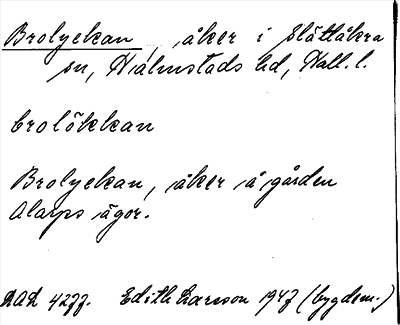 Brolyckan, åker i Slättåkra
sn, Halmstads hd, Hall. l.
brolökkan
Brolyckan, åker å gården
Alarps ägor.
DAL 4277. Edith Larsson 1947 (bygdem.)